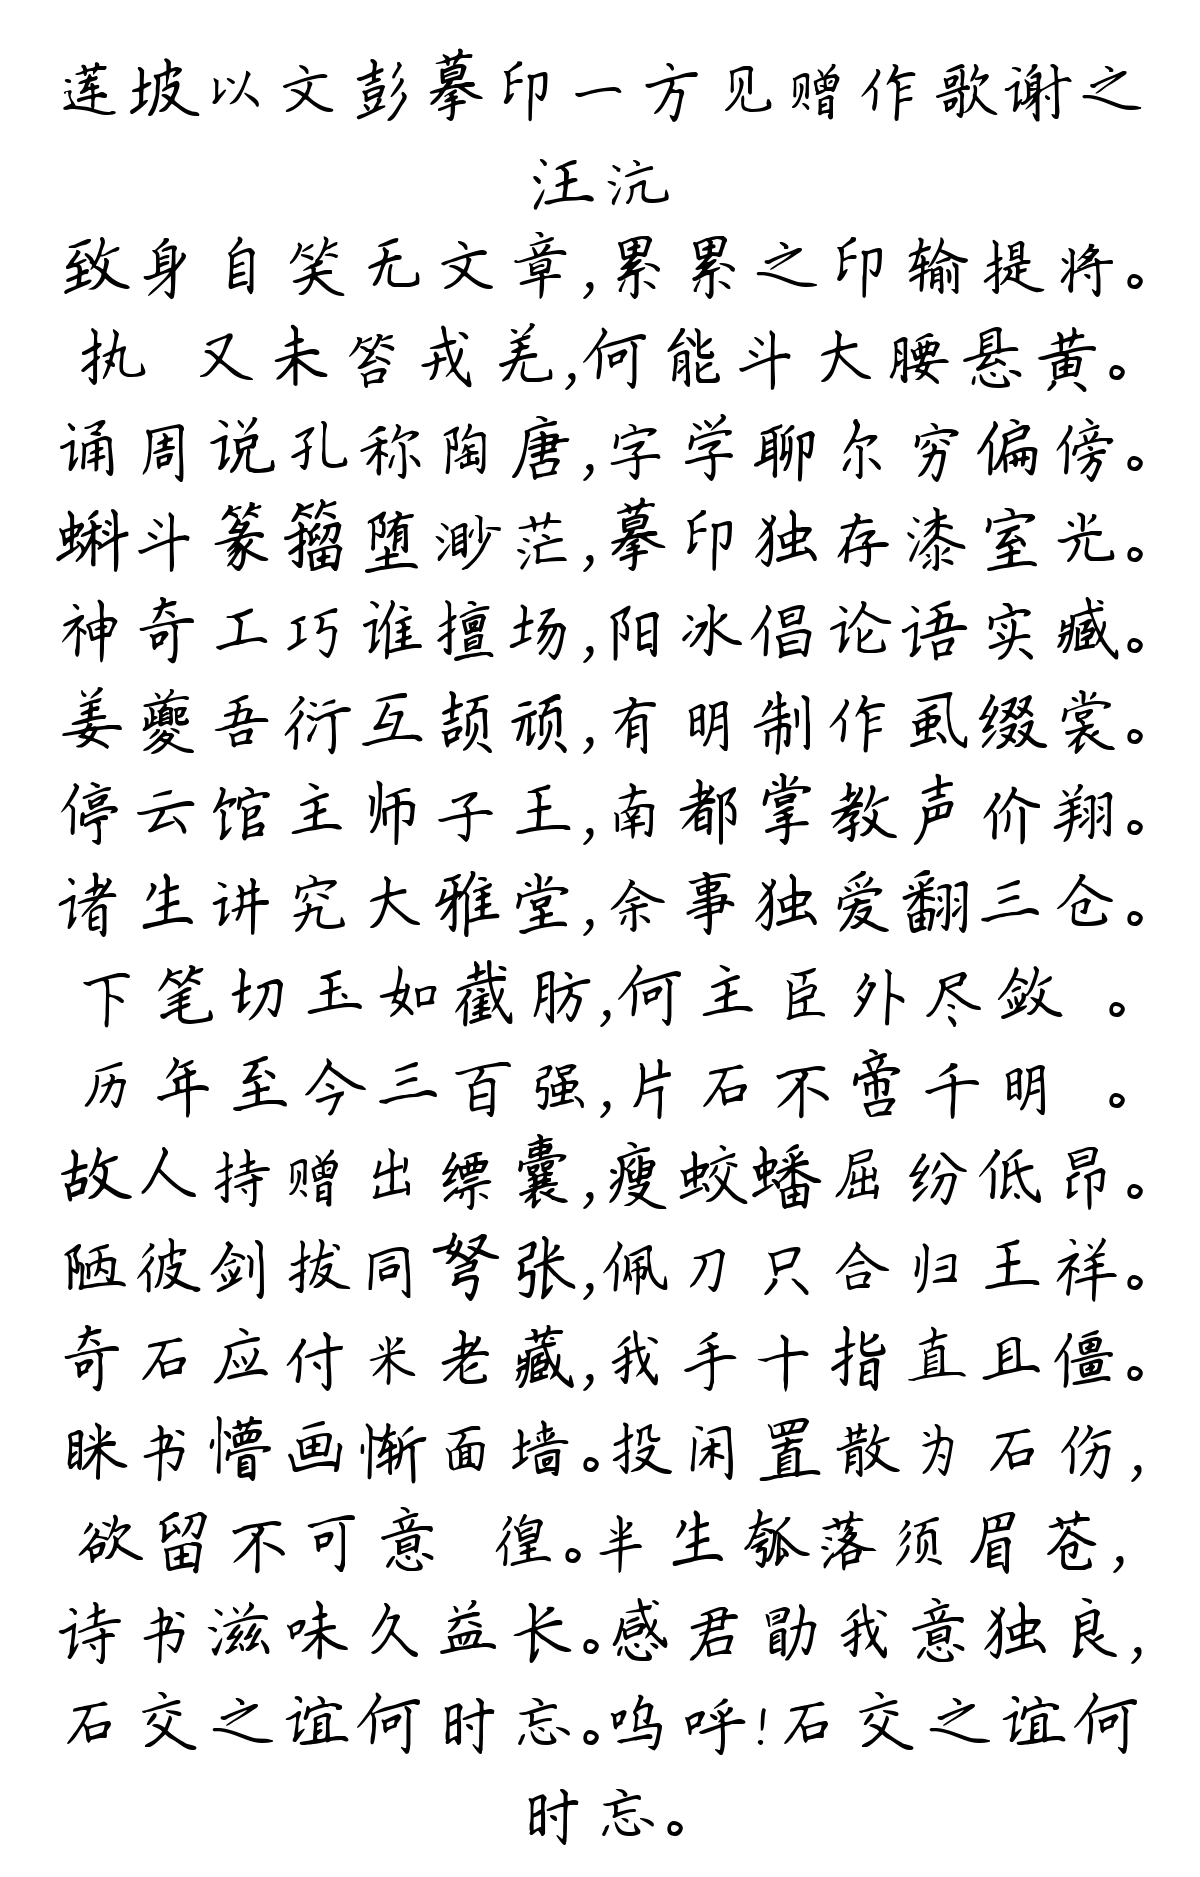 莲坡以文彭摹印一方见赠作歌谢之
汪沆
致身自笑无文章,累累之印输提将。
执 又未答戎羌,何能斗大腰悬黄。
诵周说孔称陶唐,字学聊尔穷偏傍。
蝌斗篆籀堕渺茫,摹印独存漆室光。
神奇工巧谁擅场,阳冰倡论语实臧。
姜夔吾衍互颉颃,有明制作虱缀裳。
停云馆主师子王,南都掌教声价翔。
诸生讲究大雅堂,余事独爱翻三仓。
下笔切玉如截肪,何主臣外尽敛 。
历年至今三百强,片石不啻千明 。
故人持赠出缥囊,瘦蛟蟠屈纷低昂。
陋彼剑拔同弩张,佩刀只合归王祥。
奇石应付米老藏,我手十指直且僵。
眯书懵画惭面墙。投闲置散为石伤,
欲留不可意 徨。半生瓠落须眉苍,
诗书滋味久益长。感君勖我意独良,
石交之谊何时忘。呜呼!石交之谊何
时忘。